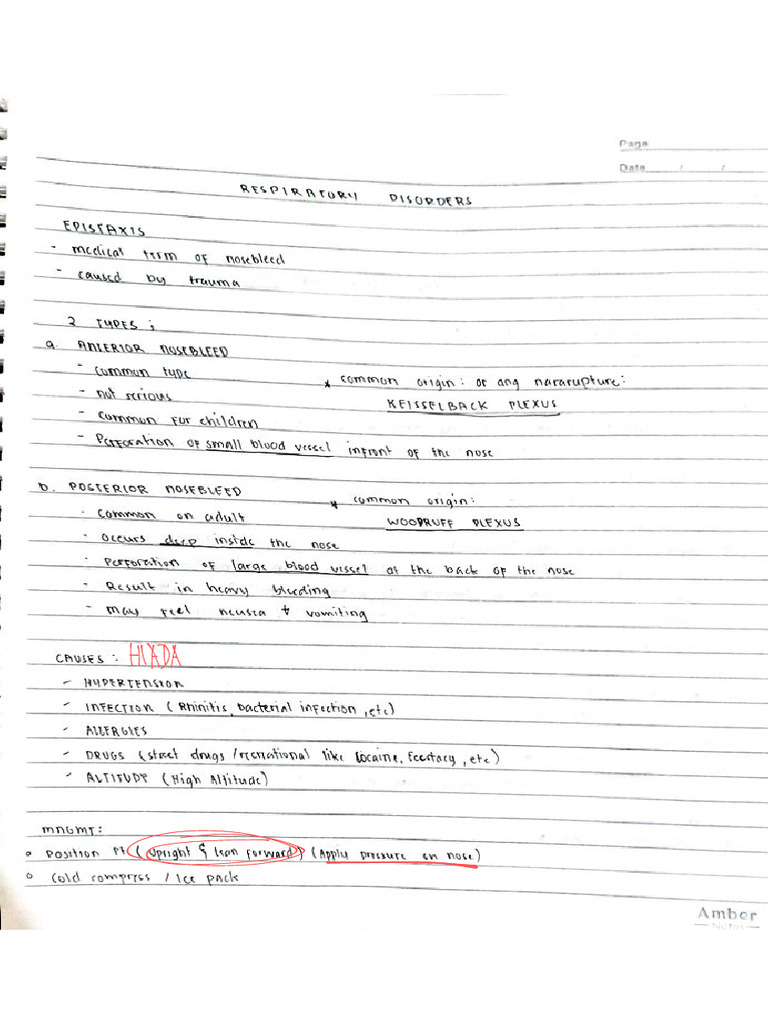 Page
Date / /
RESPIRATORY DISORDERS
EPISTAXIS
- medical term of nosebleed
- caused by trauma
2 TYPES ;
a. ANTERIOR NOSEBLEED
- common type
* common origin: or ang nararupture:
- not serious
KEISSELBACK PLEXUS
- common for children
- Perforation of small blood vessel infront of the nose
b. POSTERIOR NOSEBLEED
* common origin:
- common on adult
WOODRUFF PLEXUS
- occurs deep inside the nose
- Perforation of large blood vessel at the back of the nose
- Result in heavy bleeding
- may feel neusea + vomiting
CAUSES : HIADA
- HYPERTENSION
- INFECTION ( Rhinitis, bacterial infection , etc)
- ALLERGIES
- DRUGS (street drugs / recreational like Cocaine, Ecectacy , etc)
- ALTITUDE (High Altitude)
MNGMT:
o Position Pt ( upright & lean forward) ( Apply pressure on nose)
o Cold compress / Ice pack
Amber
Notes